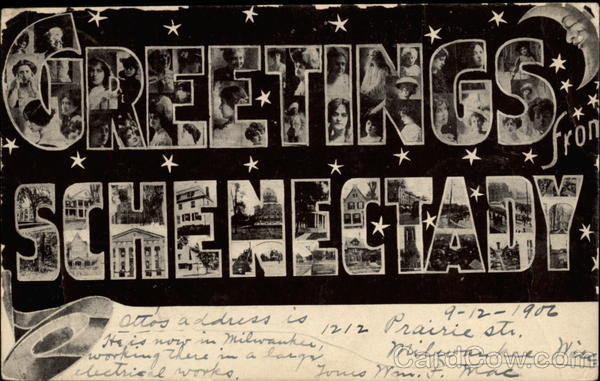 CardCow.com
GREETINGS
from
SCHENECTADY
9-12-1906
Otto's address is
1212 Prairie str.
Milwaukee Wis.
He is now in Milwaukee,
working there in a large
electrical works.
Yours Wm. F. Mac
CardCow.com